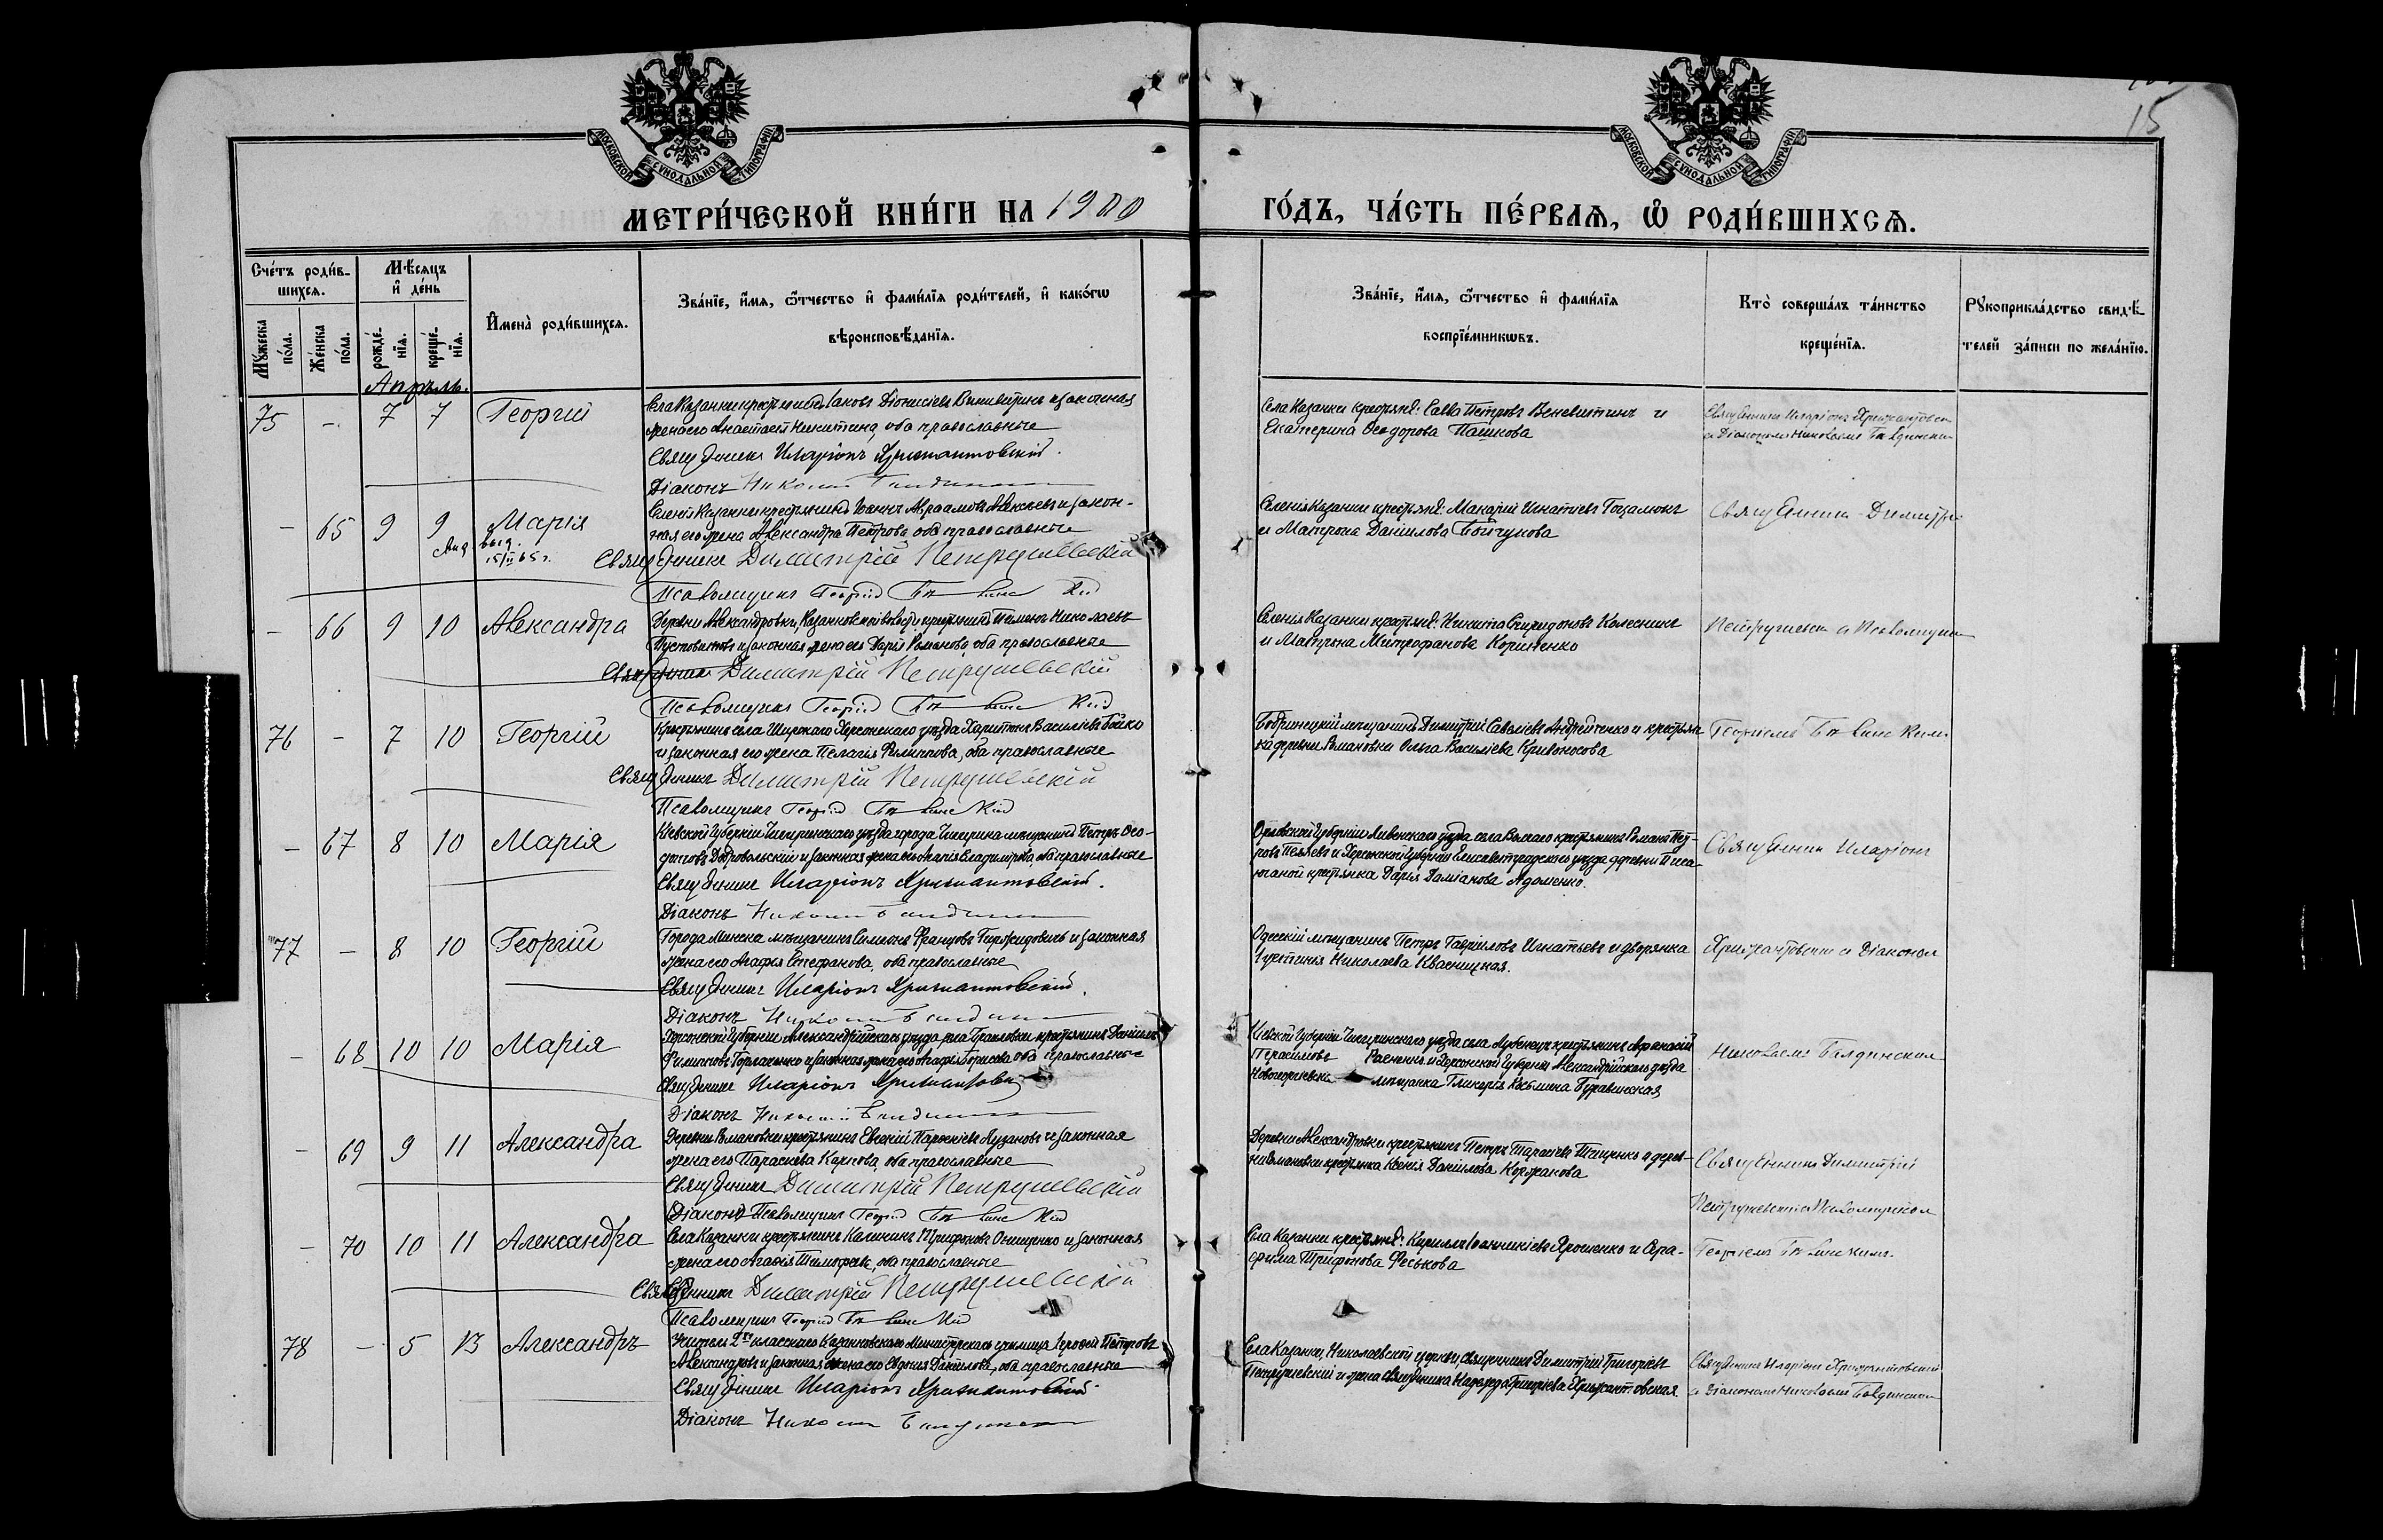 15
МОСКОВСКОЙ СѴНОДАЛЬНОЙ ТИПОГРАФІИ
МОСКОВСКОЙ СѴНОДАЛЬНОЙ ТИПОГРАФІИ
МЕТРИ́ЧЕСКОЙ КНИ́ГИ НА 1900 ГО́ДЪ, ЧА́СТЬ ПЕ́РВАѦ, Ѽ РОДИ́ВШИХСѦ.
Сче́тъ роди́в-
шихсѧ.
Мѣ́сѧцъ
и҆ де́нь
Мꙋ́жеска по́ла.
Же́нска по́ла.
рожде́-нїѧ.
креще́-нїѧ.
И҆мена̀ роди́вшихсѧ.
Зва́нїе, и҆́мѧ, ѻ҆́тчество и҆ фами́лїѧ роди́телей, и҆ како́гѡ
вѣроисповѣ́данїѧ.
Зва́нїе, и҆́мѧ, ѻ҆́тчество и҆ фами́лїѧ
воспрїе́мникѡвъ.
Кто̀ соверша́лъ та́инство
креще́нїѧ.
Рꙋкоприкла́дство свидѣ́-
телей за́писи по жела́нїю.
Апрѣль.
75 - 7 7 Георгій
Села Казанки крестьянинъ Іаковъ Діонисіевъ Виневитинъ и законная
жена его Анастасія Никитина, оба православные
Священникъ Иларіонъ Хрисантовскій.
Діаконъ
Села Казанки крестьяне: Савва Петровъ Веневитинъ и
Екатерина Ѳеодорова Пашкова
Священникъ Иларіонъ Хрисантовск
и Діакономъ Николаемъ
- 65 9 9 Марія
свид выд.
15/II 65 г.
Селенія Казанки крестьянинъ Іоаннъ Авраамовъ Алексѣевъ и закон-
ная его жена Александра Петрова оба православные
Священникъ Димитрій Петрушевскій
Псаломщикъ Георгій
Селенія Казанки крестьяне: Макарій Игнатіевъ
и Матрона Даніилова Бойчукова
Священникъ Димитрі
- 66 9 10 Александра
Деревни Александровки, Казанковской волости, крестьянинъ Пименъ Николаевъ
и законная жена его Дарія Романова оба православные
Священникъ Димитрій Петрушевскій
Псаломщикъ Георгій
Селенія Казанки крестьяне: Никита Спиридоновъ Колесникъ
и Матрона Митрофанова Корниенко
Петрушевск и Псаломщик
76 - 7 10 Георгій
Крестьянинъ села Широкаго Херсонскаго уѣзда Харитонъ Василіевъ Бойко
и законная его жена Пелагія Филиппова, оба православные
Священникъ Димитрій Петрушевскій
Псаломщикъ Георгій
Бобринецкій мѣщанинъ Димитрій Савеліевъ Андрейченко и крестьян
ка деревни Романовки Ольга Василіева Кривоносова
Георгіемъ
- 67 8 10 Марія
Кіевской Губерніи Чигиринскаго уѣзда города Чигирина мѣщанинъ Петръ Ѳео-
Добровольскій и законная жена его Марія Владимірова, оба православные
Священникъ Иларіонъ Хрисантовскій.
Діаконъ
Орловской Губерніи Ливенскаго уѣзда села крестьянинъ Романъ Пет-
ровъ и Херсонской Губерніи Елисаветградскаго уѣзда деревни
крестьянка Дарія Даміанова Адаменко.
Священник Иларіонъ
77 - 8 10 Георгій
Города Минска мѣщанинъ Симеонъ Францовъ и законная
жена его Агафія Стефанова, оба православные
Священникъ Иларіонъ Хрисантовскій.
Діаконъ
Одесскій мѣщанинъ Петръ Гавріиловъ Игнатьевъ и дворянка
Іустинія Николаева Квасницкая.
Хрисантовски и Діаконом
- 68 10 10 Марія
Херсонской Губерніи Александрійскаго уѣзда крестьянинъ Даніилъ
Филимоновъ и законная жена его Агафія Борисова оба православные
Священникъ Иларіонъ
Діаконъ
Кіевской Губерніи Чигиринскаго уѣзда села крестьянинъ Аѳанасій
Герасимовъ и Херсонской Губерніи Александрійскаго уѣзда
Новогеоргіевска мѣщанка Гликерія Косьмина
Николаемъ
- 69 9 11 Александра
Деревни Романовки крестьянинъ Евгеній Парѳеніевъ Лузановъ и законная
жена его Параскева Карпова, оба православные
Священникъ Димитрій Петрушевскій
Діаконъ Псаломщикъ Георгій
Деревни Александровки крестьянинъ Петръ Тарасіевъ Тищенко и дерев-
ни Романовки крестьянка Ксенія Даніилова Коржанова
Священникъ Димитрій
Петрушевскій и Псаломщиком
- 70 10 11 Александра
Села Казанки крестьянинъ Калиникъ Трифоновъ Онищенко и законная
жена его Агафія Тимофеева, оба православные
Священникъ Димитрій Петрушевскій
Псаломщикъ Георгій
Села Казанки крестьяне: Кириллъ Іоанникіевъ Ярошенко и Сера-
фима Трифонова Феськова
Георгіемъ
78 - 5 13 Александръ
Учитель 2хъ класснаго Казанковскаго Министерскаго училища Іероѳей Петровъ
Александровъ и законная жена его Евдокія Даніилова, оба православные
Священникъ Иларіонъ Хрисантовскій
Діаконъ
Села Казанки, Николаевской церкви, священникъ Димитрій Григоріевъ
Петрушевскій и жена священника Надежда Григоріева Хрисантовская.
Священникъ Иларіонъ Хрисантовскій
и Діакономъ Николаемъ